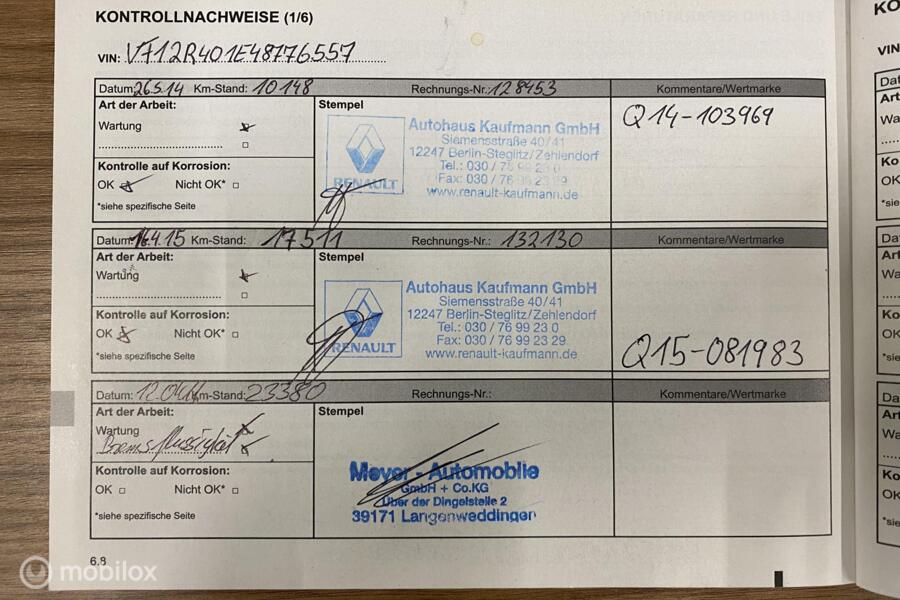 KONTROLLNACHWEISE (1/6)
VIN: VF12R401E48776557
Datum: 26.5.14 Km-Stand: 10148 Rechnungs-Nr.: 128453 Kommentare/Wertmarke
Art der Arbeit:
Wartung
Kontrolle auf Korrosion:
OK Nicht OK*
*siehe spezifische Seite
Stempel
RENAULT
Autohaus Kaufmann GmbH
Siemensstraße 40/41
12247 Berlin-Steglitz/Zehlendorf
Tel.: 030 / 76 99 23 0
Fax: 030 / 76 99 23 29
www.renault-kaufmann.de
Q14-103969
Datum: 16.4.15 Km-Stand: 17511 Rechnungs-Nr.: 132130 Kommentare/Wertmarke
Art der Arbeit:
Wartung
Kontrolle auf Korrosion:
OK Nicht OK*
*siehe spezifische Seite
Stempel
RENAULT
Autohaus Kaufmann GmbH
Siemensstraße 40/41
12247 Berlin-Steglitz/Zehlendorf
Tel.: 030 / 76 99 23 0
Fax: 030 / 76 99 23 29
www.renault-kaufmann.de
Q15-081983
Datum: 12.04.16 Km-Stand: 23380 Rechnungs-Nr.: Kommentare/Wertmarke
Art der Arbeit:
Wartung
Bremsflüssigkeit
Kontrolle auf Korrosion:
OK Nicht OK*
*siehe spezifische Seite
Stempel
Meyer - Automobile
GmbH + Co.KG
Über der Dingelstelle 2
39171 Langenweddingen
6.8
mobilox
KO
VIN
Dat
Art
Wa
Ko
OK
*sie
Da
Art
Wa
Ko
OK
*sie
Da
Art
Wa
Ko
OK
*sie